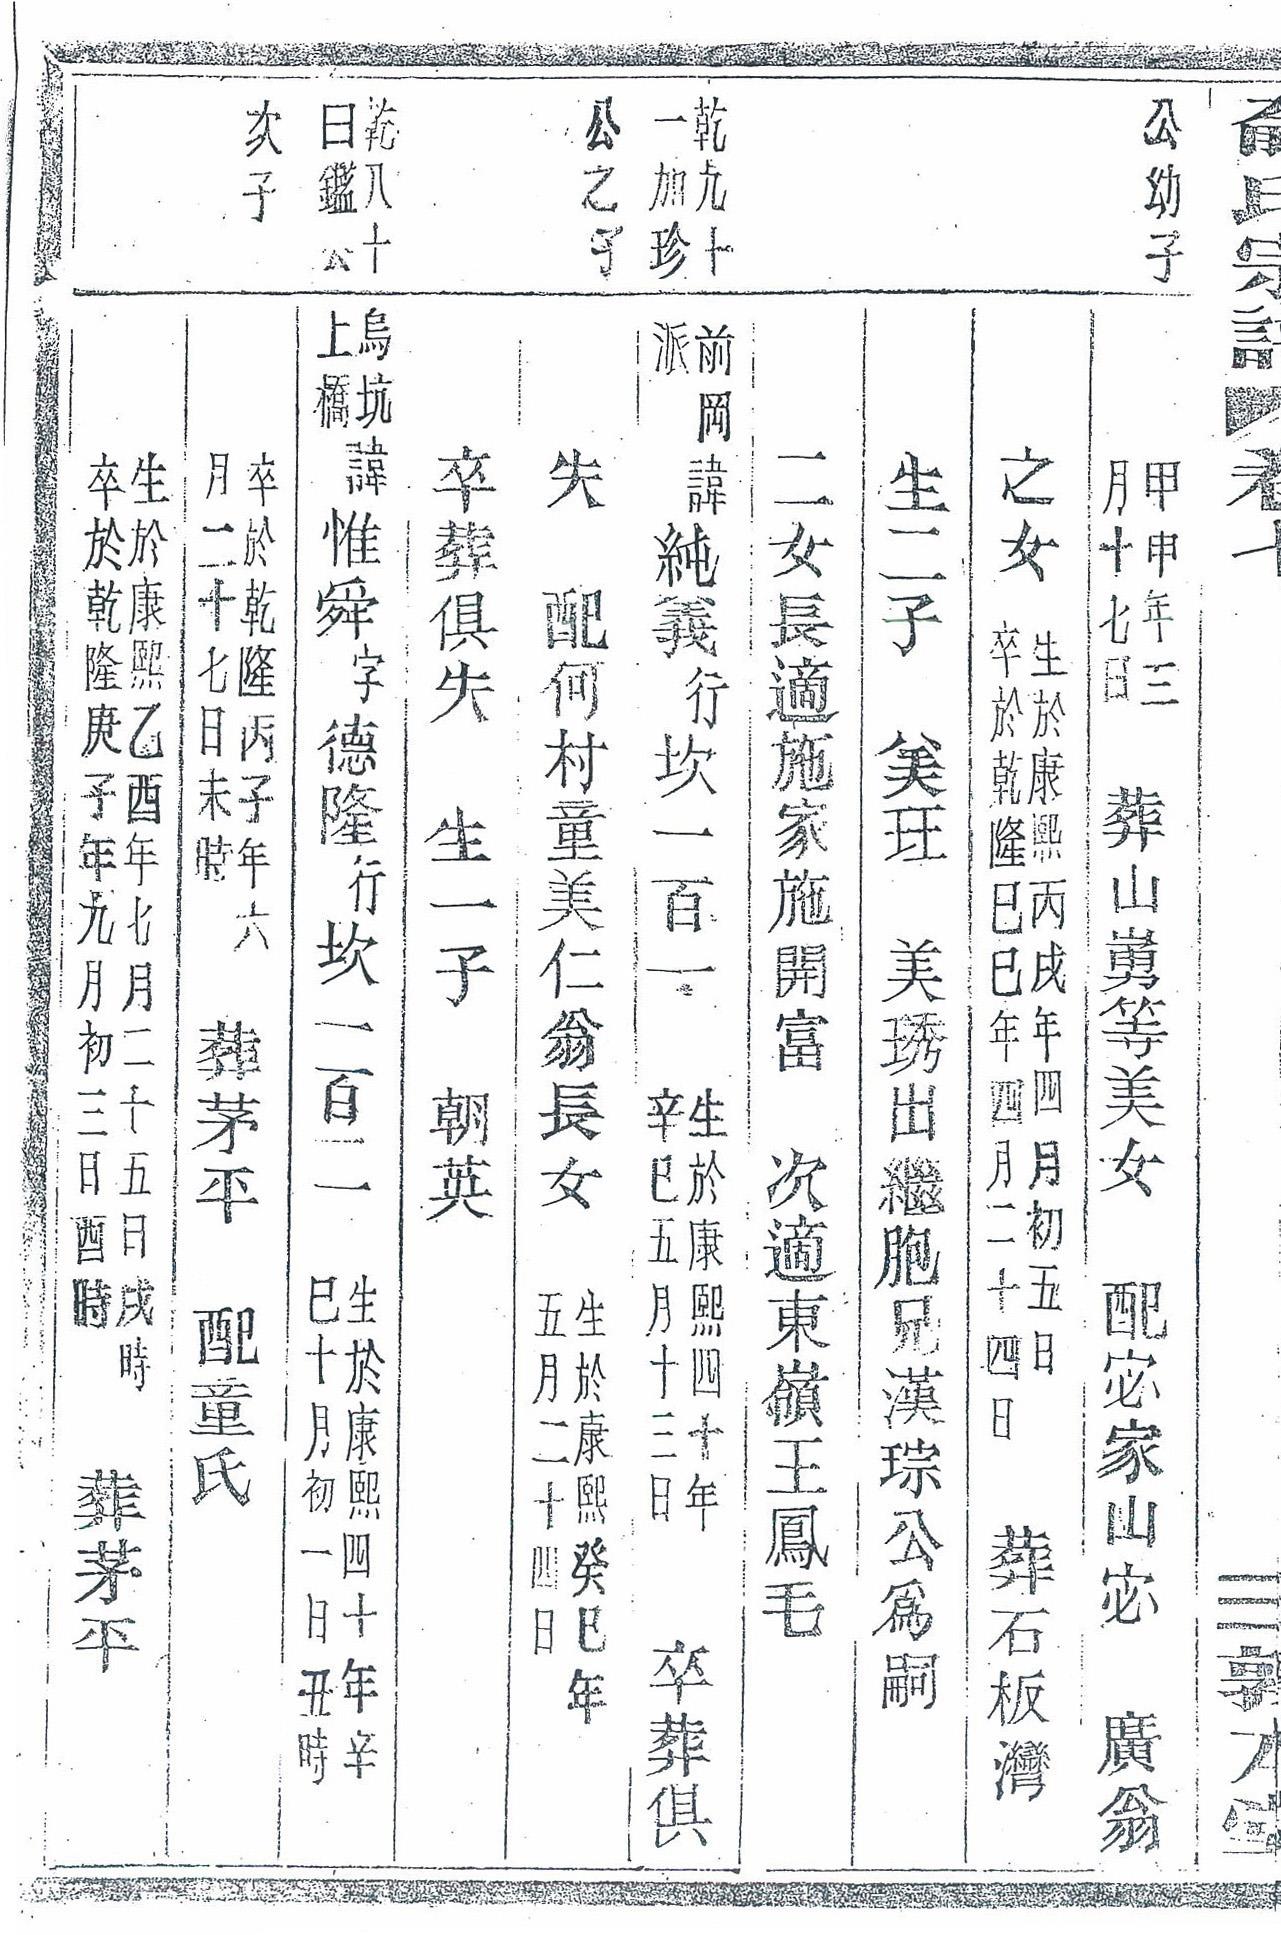 氏宗譜 卷十 三 敦本堂
公幼子
甲申年三
月十七日
葬山嶴等美女 配宓家山宓 廣翁
之女
生於康熙丙戌年四月初五日
卒於乾隆己巳年四月二十四日
葬石板灣
生二子 美玨 美琇出繼胞兄漢琮公為嗣
二女長適施家施開富 次適東嶺王鳳毛
乾九十
一加珍
公之子
前岡
派
諱純義行坎一百一
生於康熙四十年
辛巳五月十三日
卒葬俱
失 配何村童美仁翁長女
生於康熙癸巳年
五月二十四日
卒葬俱失 生一子 朝英
乾八十
曰鑑公
次子
烏坑
上橋
諱惟舜字德隆行坎一百二
生於康熙四十年辛
巳十月初一日丑時
卒於乾隆丙子年六
月二十七日未時
葬茅平 配童氏
生於康熙乙酉年七月二十五日戌時
卒於乾隆庚子年九月初三日酉時
葬茅平